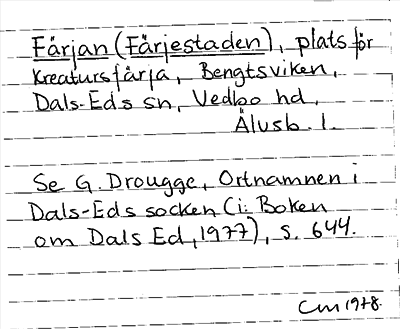 Färjan (Färjestaden), plats för
kreatursfärja, Bengtsviken,
Dals-Eds sn, Vedbo hd,
Älvsb. l.
Se G. Drougge, Ortnamnen i
Dals-Eds socken (i: Boken
om Dals Ed, 1977), s. 644.
CM 1978.